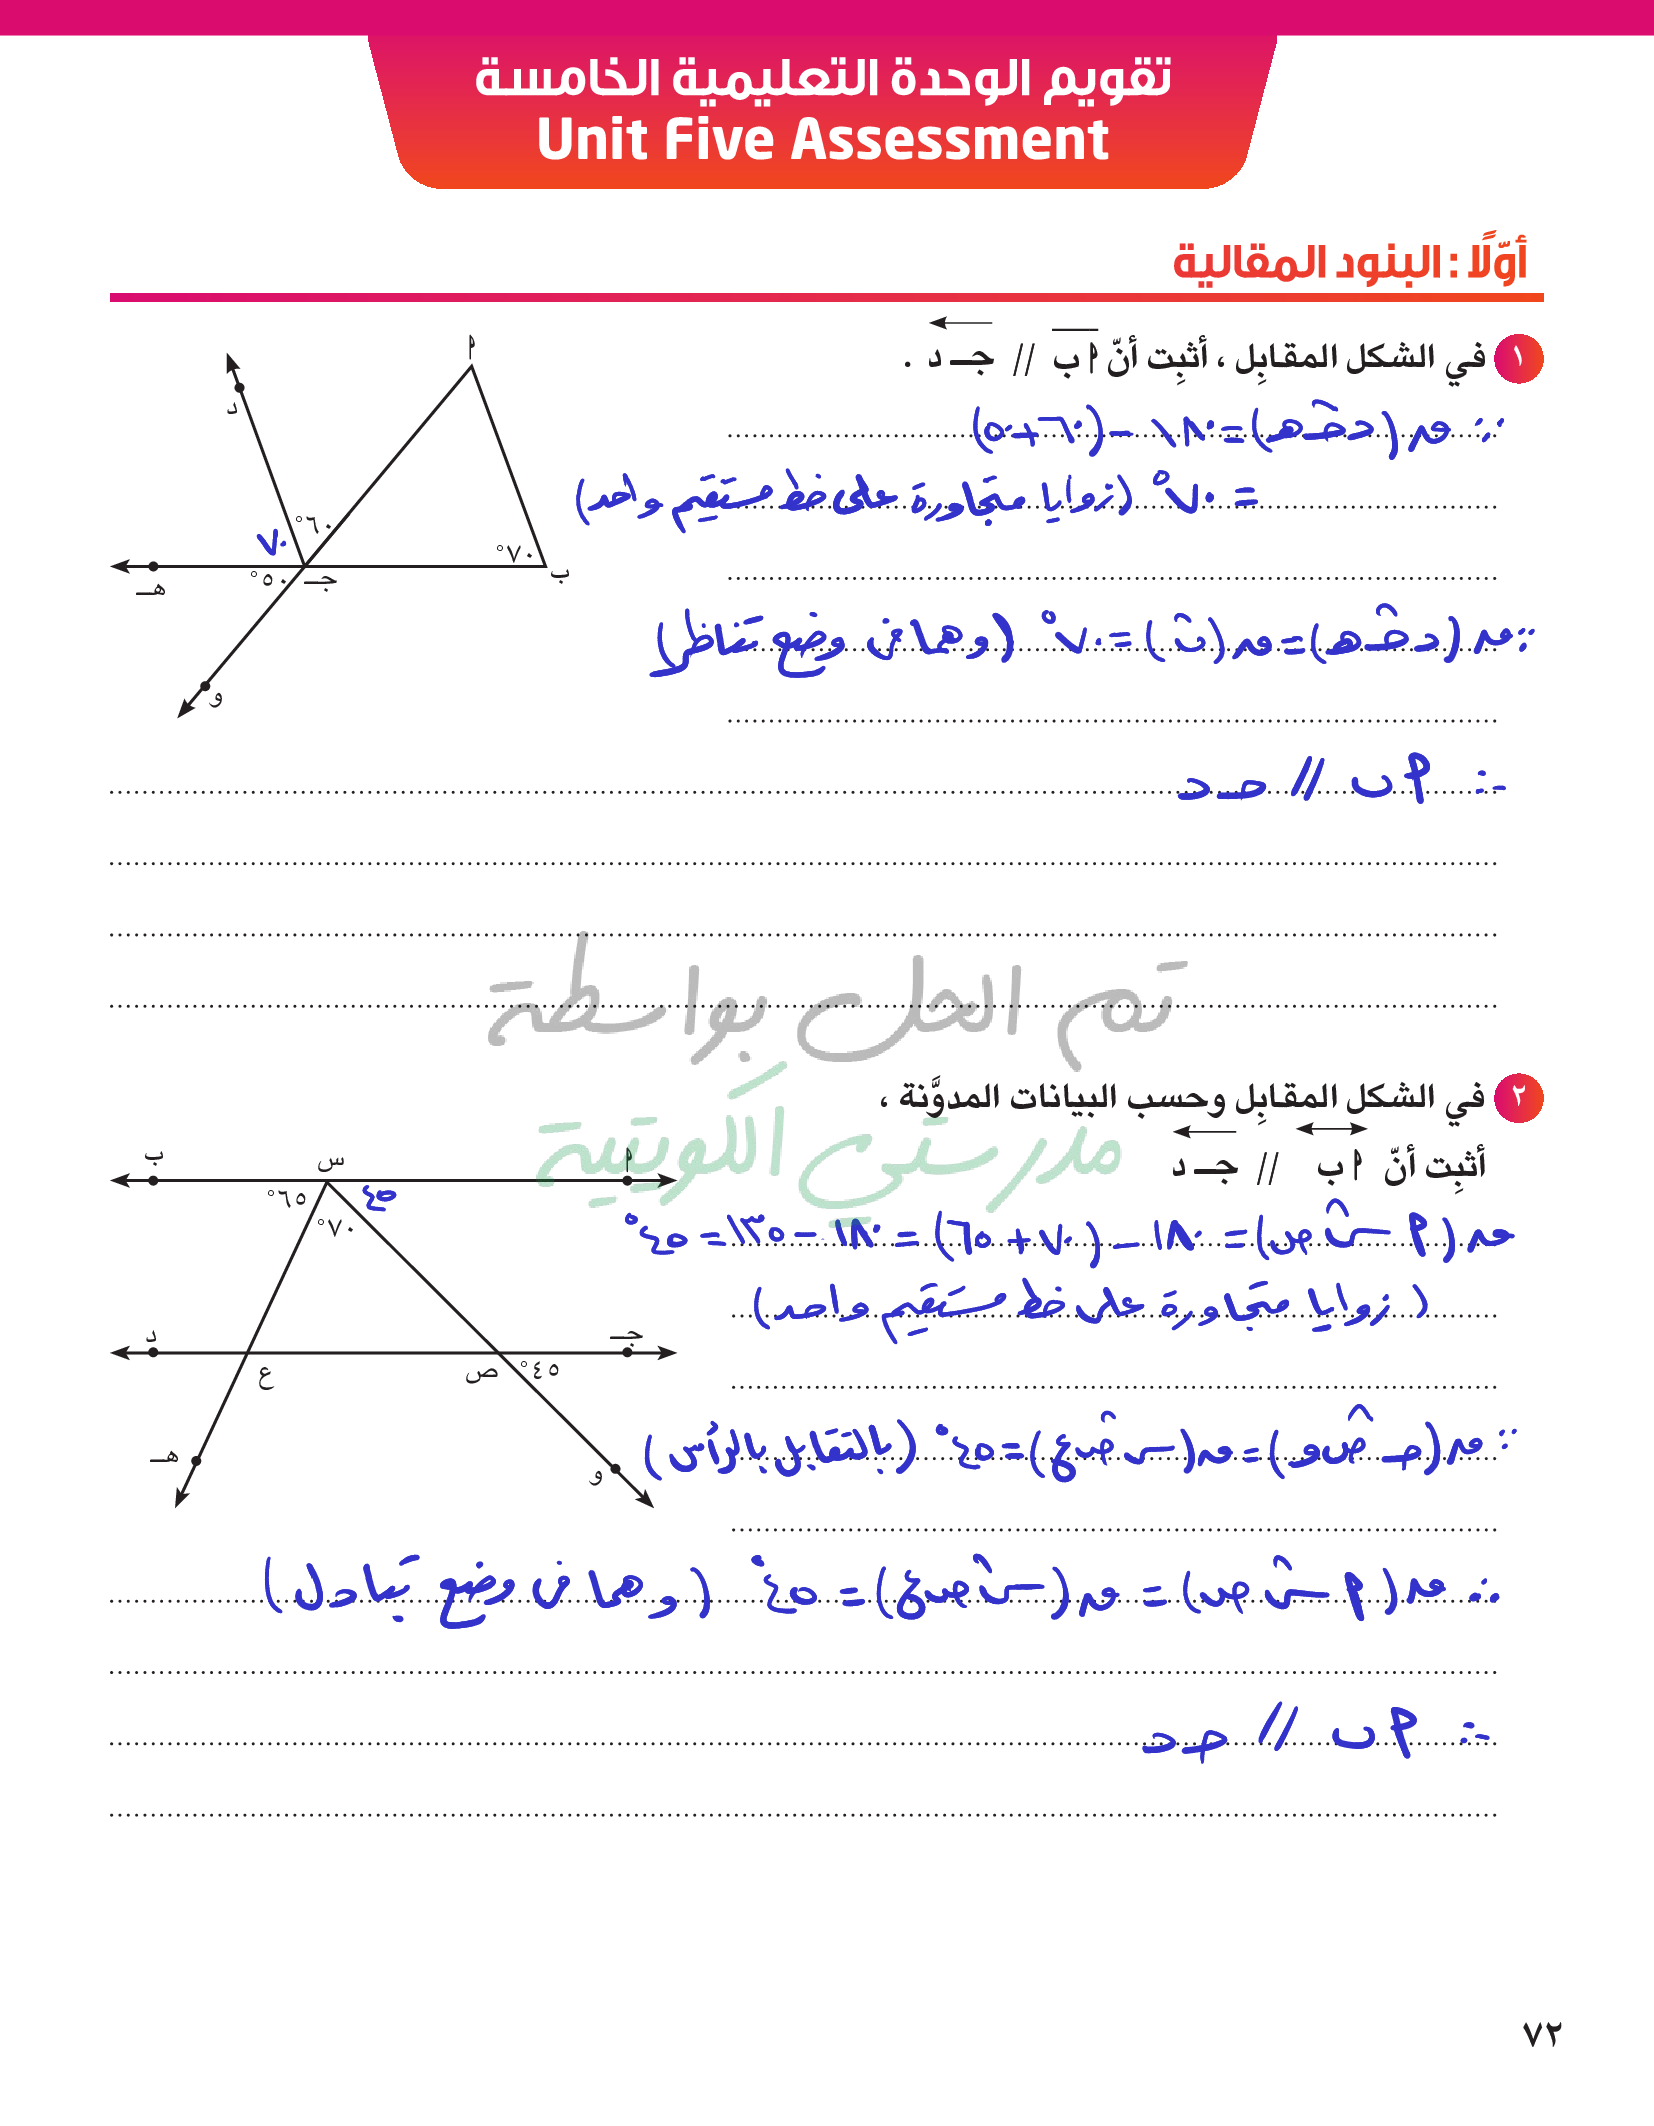 تقويم الوحدة التعليمية الخامسة
Unit Five Assessment
أوّلًا : البنود المقالية
١ في الشكل المقابِل ، أثبِت أنّ أ ب // جـ د .
∵ ق (د جـ هـ) = ١٨٠ - (٦٠ + ٥٠)
= ٧٠° (زوايا متجاورة على خط مستقيم واحد)
∵ ق (د جـ هـ) = ق (ب) = ٧٠° (وهما في وضع تناظر)
∴ أ ب // جـ د
أ
د
٦٠°
٧٠
٧٠°
ب
جـ
٥٠°
هـ
و
تم الحل بواسطة
مدرستي الكويتية
٢ في الشكل المقابِل وحسب البيانات المدوَّنة ،
أثبِت أنّ أ ب // جـ د
ق (أ س ص) = ١٨٠ - (٧٠ + ٦٥) = ١٨٠ - ١٣٥ = ٤٥°
(زوايا متجاورة على خط مستقيم واحد)
∵ ق (جـ ص و) = ق (س ص ع) = ٤٥° (بالتقابل بالرأس)
∴ ق (أ س ص) = ق (س ص ع) = ٤٥° (وهما في وضع تبادل)
∴ أ ب // جـ د
ب
س
أ
٦٥°
٤٥
٧٠°
د
جـ
ع
ص
٤٥°
هـ
و
٧٢